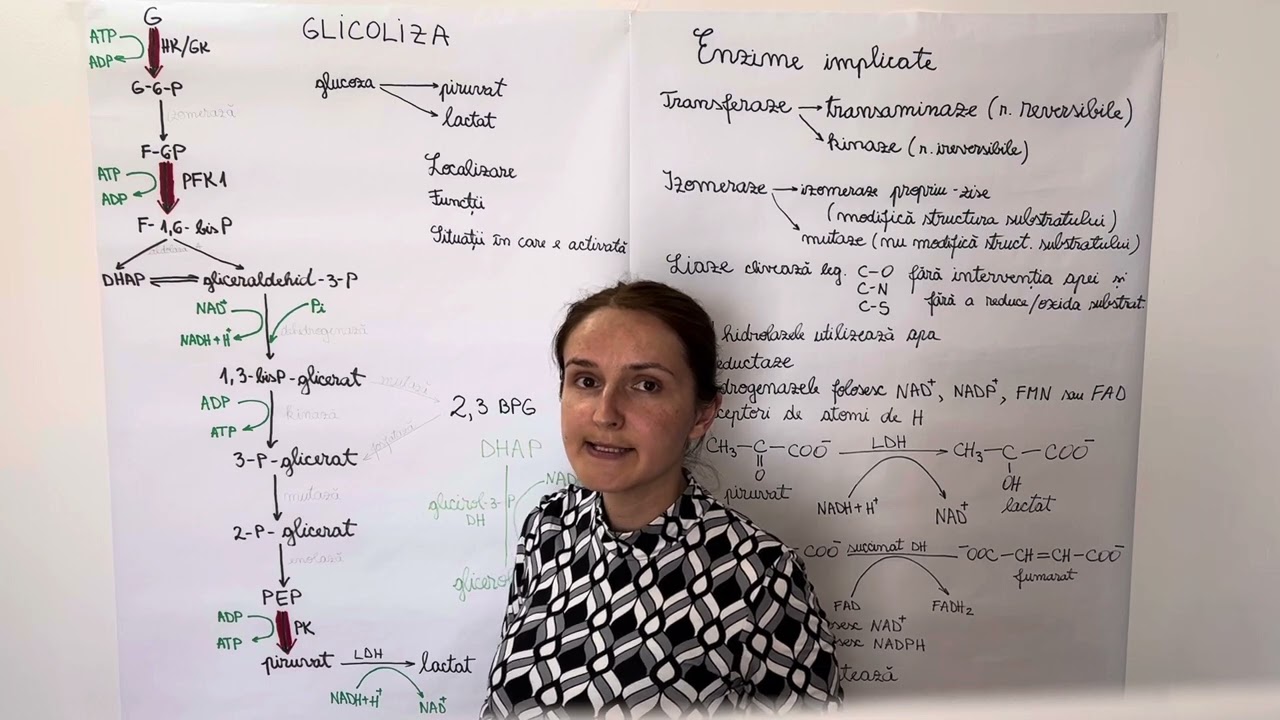 GLICOLIZA
G
ATP
HK/GK
ADP
G-6-P
izomerază
F-6P
ATP
PFK1
ADP
F-1,6-bisP
DHAP gliceraldehid-3-P
NAD⁺ Pi
NADH+H⁺ dehidrogenază
1,3-bisP-glicerat
mutază
ADP
kinază
ATP
2,3 BPG
3-P-glicerat
mutază
2-P-glicerat
enolază
PEP
ADP
PK
ATP
piruvat LDH lactat
NADH+H⁺ NAD⁺
glucoza piruvat
lactat
Localizare
Funcții
Situații în care e activată
DHAP
glicerol-3-P
DH
NAD
glicerol
Enzime implicate
Transferaze transaminaze (r. reversibile)
kinaze (r. ireversibile)
Izomeraze izomeraze propriu-zise
(modifică structura substratului)
mutaze (nu modifică struct. substratului)
Liaze clivează leg. C-O fără intervenția apei și
C-N fără a reduce/oxida substrat.
C-S
hidrolazele utilizează apa
eductaze
drogenazele folosesc NAD⁺, NADP⁺, FMN sau FAD
ceptori de atomi de H
CH₃-C-COO⁻ LDH CH₃-C-COO⁻
O OH
piruvat NADH+H⁺ NAD⁺ lactat
COO⁻ succinat DH ⁻OOC-CH=CH-COO⁻
fumarat
FAD FADH₂
sesc NAD⁺
sesc NADPH
tează